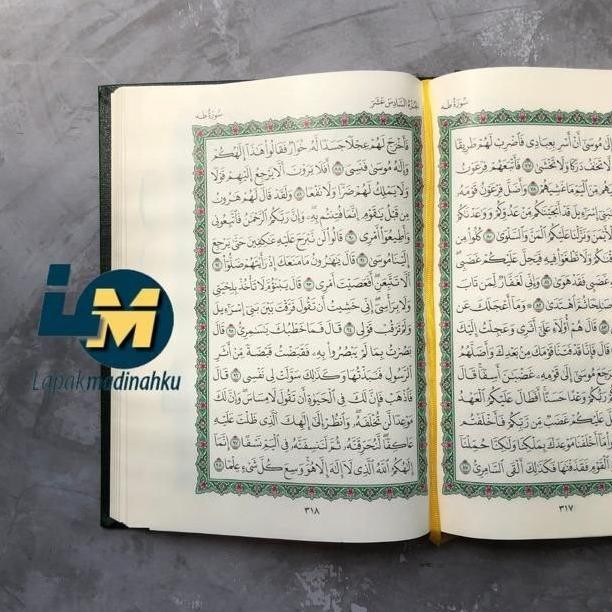 سُورَةُ طه
إِلَىٰ مُوسَىٰٓ أَنْ أَسْرِ بِعِبَادِى فَٱضْرِبْ لَهُمْ طَرِيقًا
لَّا تَخَٰفُ دَرَكًا وَلَا تَخْشَىٰ ٧٧ فَأَتْبَعَهُمْ فِرْعَوْنُ
مِّنَ ٱلْيَمِّ مَا غَشِيَهُمْ ٧٨ وَأَضَلَّ فِرْعَوْنُ قَوْمَهُۥ
إِسْرَٰٓءِيلَ قَدْ أَنجَيْنَٰكُم مِّنْ عَدُوِّكُمْ وَوَٰعَدْنَٰكُمْ
ٱلْأَيْمَنَ وَنَزَّلْنَا عَلَيْكُمُ ٱلْمَنَّ وَٱلسَّلْوَىٰ ٨٠ كُلُوا۟ مِن
وَلَا تَطْغَوْا۟ فِيهِ فَيَحِلَّ عَلَيْكُمْ غَضَبِى
غَضَبِى فَقَدْ هَوَىٰ ٨١ وَإِنِّى لَغَفَّارٌ لِّمَن تَابَ
صَٰلِحًا ثُمَّ ٱهْتَدَىٰ ٨٢ وَمَآ أَعْجَلَكَ عَن
قَالَ هُمْ أُو۟لَآءِ عَلَىٰٓ أَثَرِى وَعَجِلْتُ إِلَيْكَ
قَالَ فَإِنَّا قَدْ فَتَنَّا قَوْمَكَ مِنۢ بَعْدِكَ وَأَضَلَّهُمُ
فَرَجَعَ مُوسَىٰٓ إِلَىٰ قَوْمِهِۦ غَضْبَٰنَ أَسِفًا قَالَ
رَبُّكُمْ وَعْدًا حَسَنًا أَفَطَالَ عَلَيْكُمُ ٱلْعَهْدُ
عَلَيْكُمْ غَضَبٌ مِّن رَّبِّكُمْ فَأَخْلَفْتُم
مَآ أَخْلَفْنَا مَوْعِدَكَ بِمَلْكِنَا وَلَٰكِنَّا حُمِّلْنَآ
ٱلْقَوْمِ فَقَذَفْنَٰهَا فَكَذَٰلِكَ أَلْقَى ٱلسَّامِرِىُّ ٨٧
٣١٧
ٱلْجُزْءُ ٱلسَّادِسَ عَشَرَ
سُورَةُ طه
فَأَخْرَجَ لَهُمْ عِجْلًا جَسَدًا لَّهُۥ خُوَارٌ فَقَالُوا۟ هَٰذَآ إِلَٰهُكُمْ
وَإِلَٰهُ مُوسَىٰ فَنَسِىَ ٨٨ أَفَلَا يَرَوْنَ أَلَّا يَرْجِعُ إِلَيْهِمْ قَوْلًا
وَلَا يَمْلِكُ لَهُمْ ضَرًّا وَلَا نَفْعًا ٨٩ وَلَقَدْ قَالَ لَهُمْ هَٰرُونُ
مِن قَبْلُ يَٰقَوْمِ إِنَّمَا فُتِنتُم بِهِۦ وَإِنَّ رَبَّكُمُ ٱلرَّحْمَٰنُ فَٱتَّبِعُونِى
وَأَطِيعُوٓا۟ أَمْرِى ٩٠ قَالُوا۟ لَن نَّبْرَحَ عَلَيْهِ عَٰكِفِينَ حَتَّىٰ يَرْجِعَ
إِلَيْنَا مُوسَىٰ ٩١ قَالَ يَٰهَٰرُونُ مَا مَنَعَكَ إِذْ رَأَيْتَهُمْ ضَلُّوٓا۟ ٩٢
أَلَّا تَتَّبِعَنِ أَفَعَصَيْتَ أَمْرِى ٩٣ قَالَ يَبْنَؤُمَّ لَا تَأْخُذْ بِلِحْيَتِى
وَلَا بِرَأْسِىٓ إِنِّى خَشِيتُ أَن تَقُولَ فَرَّقْتَ بَيْنَ بَنِىٓ إِسْرَٰٓءِيلَ
وَلَمْ تَرْقُبْ قَوْلِى ٩٤ قَالَ فَمَا خَطْبُكَ يَٰسَٰمِرِىُّ ٩٥ قَالَ
بَصُرْتُ بِمَا لَمْ يَبْصُرُوا۟ بِهِۦ فَقَبَضْتُ قَبْضَةً مِّنْ أَثَرِ
ٱلرَّسُولِ فَنَبَذْتُهَا وَكَذَٰلِكَ سَوَّلَتْ لِى نَفْسِى ٩٦ قَالَ
فَٱذْهَبْ فَإِنَّ لَكَ فِى ٱلْحَيَوٰةِ أَن تَقُولَ لَا مِسَاسَ وَإِنَّ لَكَ
مَوْعِدًا لَّن تُخْلَفَهُۥ وَٱنظُرْ إِلَىٰٓ إِلَٰهِكَ ٱلَّذِى ظَلْتَ عَلَيْهِ
عَاكِفًا لَّنُحَرِّقَنَّهُۥ ثُمَّ لَنَنسِفَنَّهُۥ فِى ٱلْيَمِّ نَسْفًا ٩٧ إِنَّمَآ
إِلَٰهُكُمُ ٱللَّهُ ٱلَّذِى لَآ إِلَٰهَ إِلَّا هُوَ وَسِعَ كُلَّ شَىْءٍ عِلْمًا ٩٨
٣١٨
LM
Lapakmadinahku